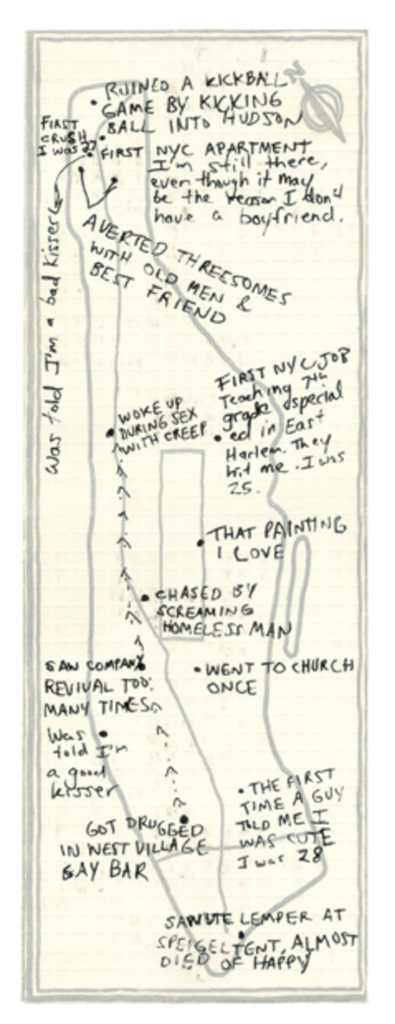 N
RUINED A KICKBALL
GAME BY KICKING
BALL INTO HUDSON
FIRST
CRUSH
I was 27
FIRST NYC APARTMENT
I'm still there,
even though it may
be the reason I don't
have a boyfriend.
was told I'm a bad kisser
AVERTED THREESOMES
WITH OLD MEN &
BEST FRIEND
FIRST NYC JOB
Teaching 7th
grade special
ed in East
Harlem. They
hit me. I was
25.
WOKE UP
DURING SEX
WITH CREEP
THAT PAINTING
I LOVE
CHASED BY
SCREAMING
HOMELESS MAN
SAW COMPANY
REVIVAL TOO
MANY TIMES
WENT TO CHURCH
ONCE
Was
told I'm
a good
kisser
THE FIRST
TIME A GUY
TOLD ME I
WAS CUTE
I was 28
GOT DRUGGED
IN WEST VILLAGE
GAY BAR
LEMPER AT
SPEIGELTENT, ALMOST
DIED OF HAPPY